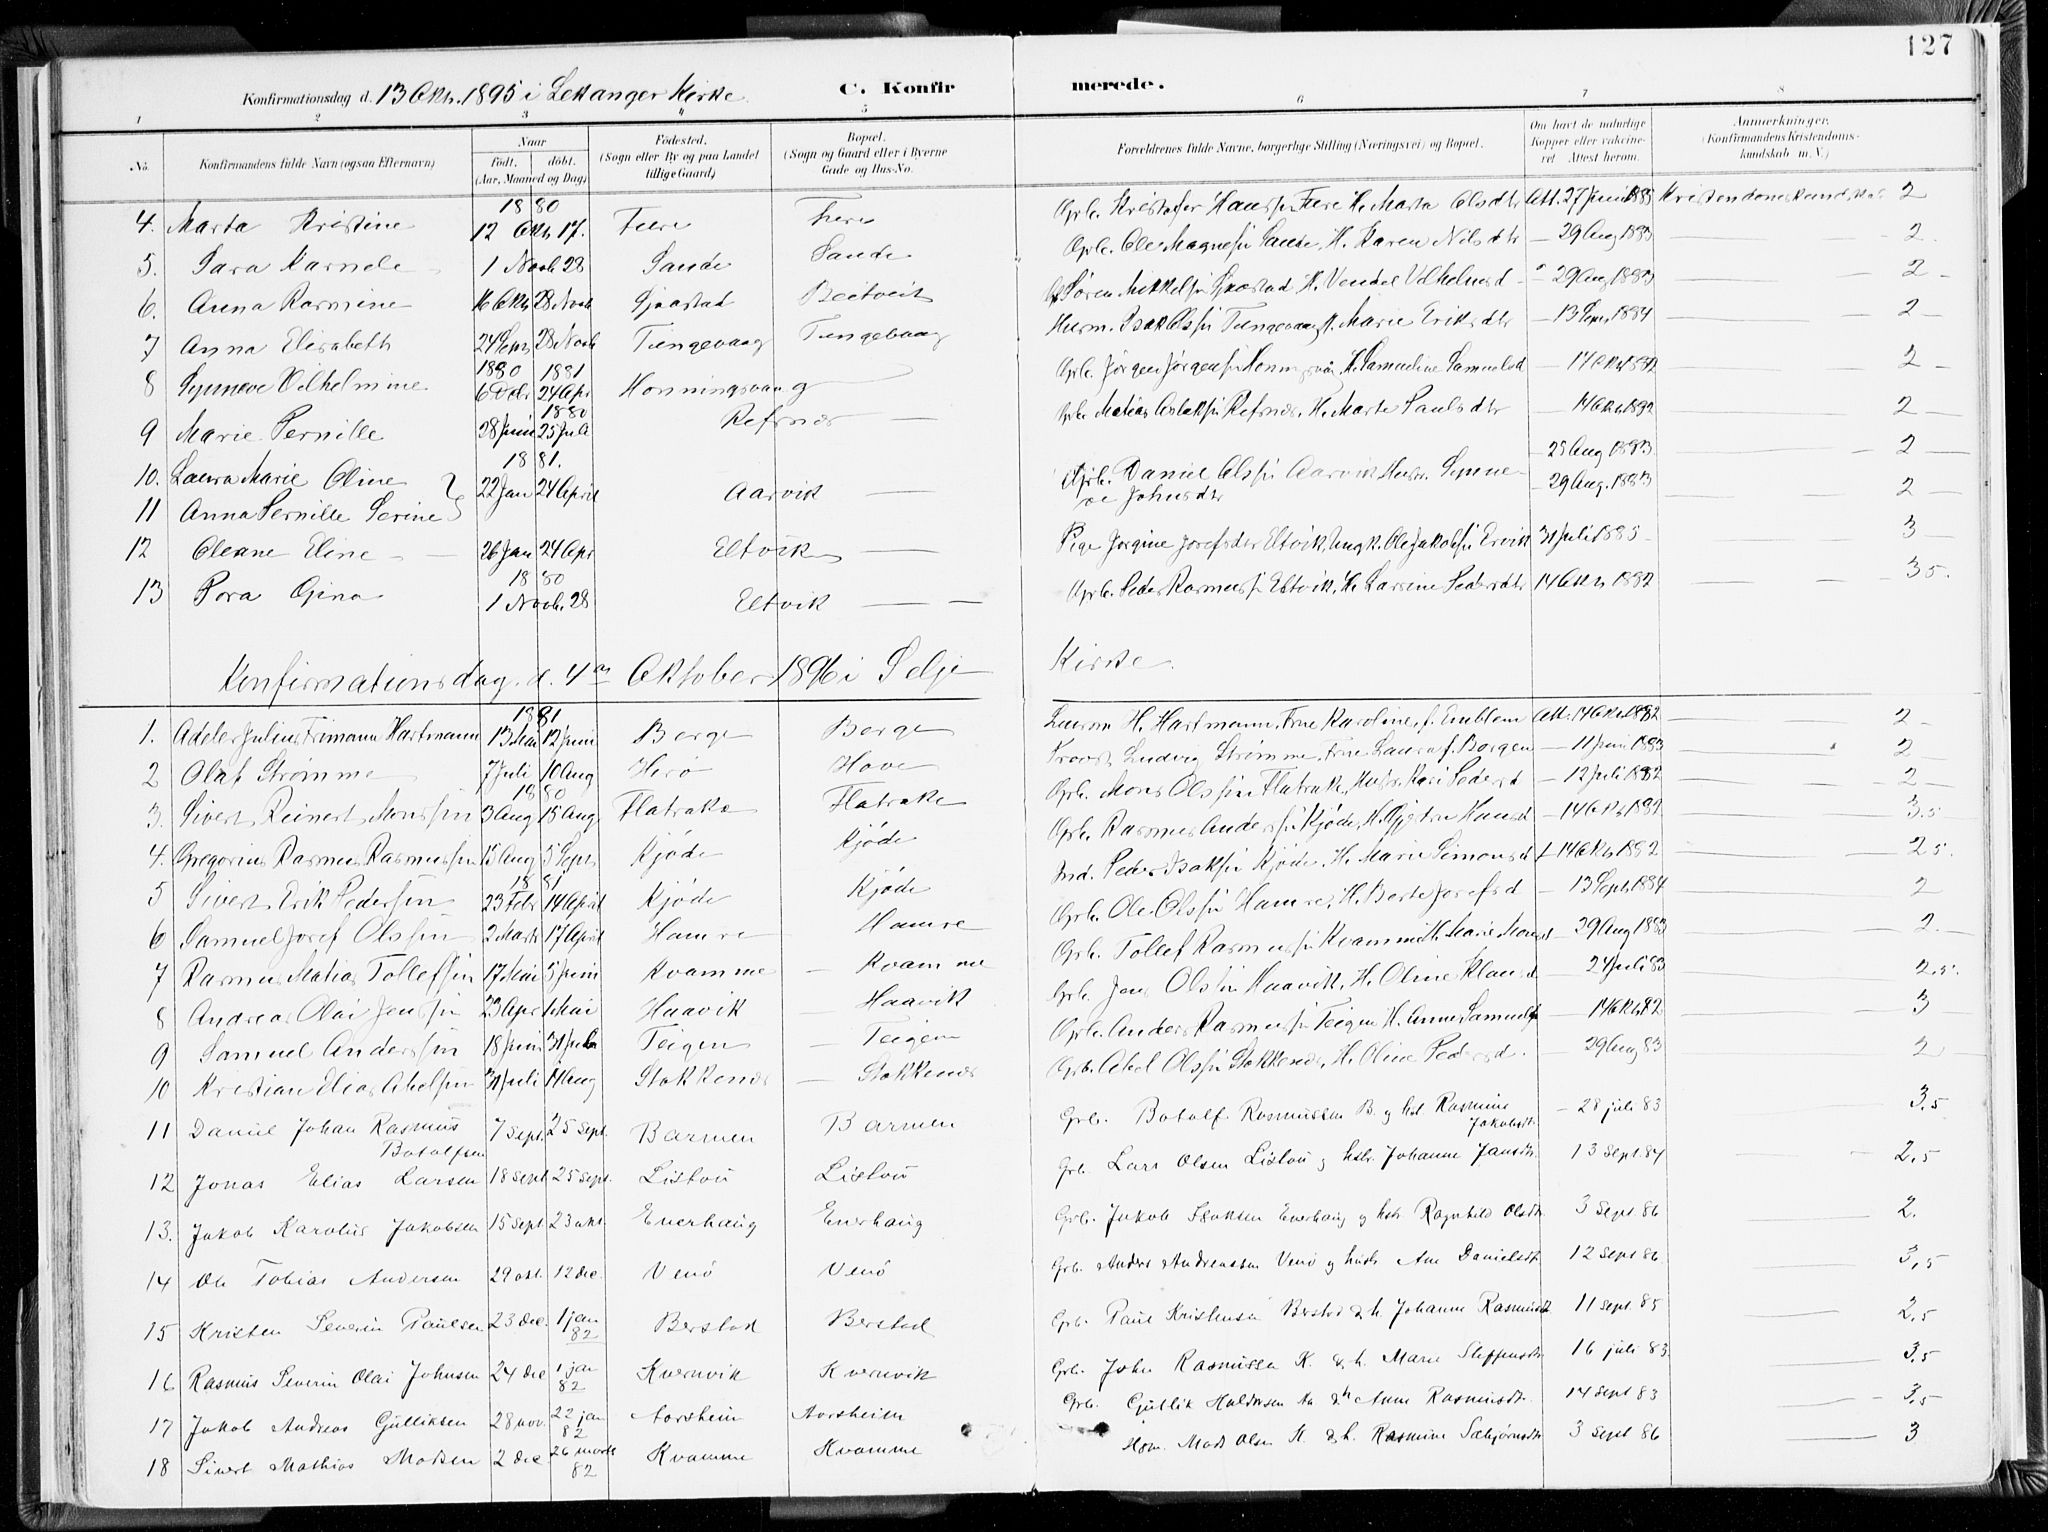 127
Konfirmationsdag d. 13 Okt. 1895 i Leikanger Kirke. C. Konfirmerede.
1 2 3 4 5 6 7 8
No. Konfirmandens fulde Navn (ogsaa Efternavn) Naar født. døbt. (Aar, Maaned og Dag) Fødested. (Sogn eller By og paa Landet tillige Gaard) Bopæl. (Sogn og Gaard eller i Byerne Gade og Hus-No. Forældrenes fulde Navne, borgerlige Stilling (Næringsvei) og Bopæl. Om havt de naturlige Kopper eller vakcineret Attest herom. Anmærkninger. (Konfirmandens Kristendomskundskab m. V.)
1880
4. Marta Kristine 12 Okt. 17. Fure Fure Grb. Kristofer Hansson Fure H. Marta Olsdtr Att. 27 Juni 1883 Kristendomskundskab 2
5. Sara Karnele 1 Novb. 28 Sande Sande Grb. Ole Magnesøn Sande, H. Karen Nilsdtr — 29 Aug 1883 — 2.
6. Anna Rasmine 16 Okt 28 Novb Sjaastad Beitveit Søren Mikkelsøn Sjaastad H. Vendel Vilhelmsd — 29 Aug 1883 — 2 —
7 Anna Elisabeth 24 Sept 28 Novb Tungevaag Tungevaag Husm. Isak Olsøn Tungevaag H. Marie Eriksdtr — 13 Sept 1884 — 2 —
1880 1881
8 Synneve Vilhelmine 6 Decbr 24 Apr Honningsvaag Grb. Jørgen Jørgensøn Honningsvåg, H. Samueline Samuelsd — 14 Okt 1882 — 2 —
1880
9 Marie Pernille 28 Juni 25 Juli Refsnes — Grb. Matias Aslaksøn Refsnes, H. Marte Paulsdtr — 14 Okt 1882 — 2 —
1881.
10. Laura Marie Oline 22 Jan 24 April Aarvik — Grb. Daniel Olsøn Aarvik Hustr. Synneve Johnsdtr — 25 Aug 1883 — 2 —
11 Anna Pernille Serine — 29 Aug. 1883 — 2 —
12 Oleane Eline — 26 Jan 24 Apr Eltvik — Pige Jorgine Josefsdtr Eltvik, Ungk. Ole Jakobsøn Ervik 31 Juli 1885 — 3 —
1880
13 Pora Gina 1 Novb. 28 Eltvik — Grb. Peder Rasmussøn Eltvik, H. Larsine Pedersdtr 14 Okt. 1882 — 35.
Konfirmationsdag d. 4de Oktober 1896 i Selje Kirke.
1881
1. Adeler Julius Frimann Hartmann 13 Mai 12 Juni Berge Berge Lensm H. Hartmann, Frue Karoline, f. Emblem Att. 14 Okt. 1882 — 2 —
2 Olaf Strømme 7 Juli 10 Aug Herø Hove Provst Ludvig Strømme, Frue Laura f. Borgen — 11 Juni 1883 — 2 —
1880
3. Sivert Reinert Monssøn 3 Aug 15 Aug Flatrake Flatrake Grb. Mons Olssøn Flatrake, Hustr. Kari Pedersd — 12 Juli 1882 — 2 —
4. Gregorius Rasmus Rasmussøn 15 Aug 5 Sept Kjøde Kjøde Grb. Rasmus Anderssøn Kjøde, H. Gjertru Hansd — 14 Okt 1882 — 3.5
1881
5 Sivert Erik Pedersøn 23 Febr 14 April Kjøde Kjøde Ind. Peder Isaksøn Kjøde, H. Marie Simonsd 14 Okt. 1882 — 25.
6 Samuel Josef Olssøn 2 Marts 17 April Hamre Hamre Grb. Ole Olssøn Hamre, H. Berte Josefsd — 13 Sept. 1884 — 2
7 Rasmus Matias Tollefsøn 17 Mai 5 Juni Kvamme — Kvamme Grb. Tollef Rasmussøn Kvamme H. Marie Monsd — 29 Aug 1883 — 2. —
8 Andreas Olai Jenssøn 23 Apr 1 Mai Haavik — Haavik Grb. Jens Olssøn Haavik, H. Oline Klausd — 24 Juli 83 — 2.5.
9 Samuel Anderssøn 18 Juni 31 Juli Teigen — Teigen Grb. Anders Rasmussøn Teigen H. Anne Samuelsd — 14 Okt. 82 — 3
10 Kristian Elias Abelsøn 31 Juli 14 Aug Stokkenes — Stokkenes Grb. Abel Olssøn Stokkenes, H. Oline Pedersd. — 29 Aug 83 — 2
11 Daniel Johan Rasmus Botolfsen 7 Sept. 25 Sept. Barmen Barmen Grb. Botolf Rasmussen B. og hst Rasmine Jakobsdt. — 28 juli 83 — 3.5
12 Jonas Elias Larsen 18 sept 25 sept. Listou Listou Grb. Lars Olsen Listou og hstr. Johanne Jansdt. 13 Sept. 84 — 2,5
13. Jakob Karolus Jakobsen 15 sept 23 okt. Enerhaug Enerhaug Grb. Jakob Isaksen Enerhaug og hstr Ragnhild Olsdt. 3 Sept 86 — 2.
14 Ole Tobias Andersen 29 okt. 12 dec. Venø Venø Grb. Anders Andreassen Venø og hustr Ane Danielsdt. 12 Sept 86 — 3,5
15 Kristen Severin Paulsen 23 dec. 1 jan 82 Berstad Berstad Grb. Paul Kristensen Berstad & h. Johanne Rasmusdt. 11 sept. 85 — 2,5
16 Rasmus Severin Olai Johnsen 24 dec 1 jan 82 Kvernvik Kvernvik Grb. John Rasmussen K. & h. Marie Steffensdt. 16 juli 83. — 3,5
17 Jakob Andreas Gulliksen 28 nov. 22 jan 82 Aarsheim Aarsheim Grb. Gullik Haldorsen Aa & h Anne Rasmusdt. 14 Sept 83 — 3,5
18 Sivert Mathias Madsen 2 dec 26 marts 82 Kvamme Kvamme Hom. Mads Olsen K. & h. Rasmine Sæbjørnsdt. 3 Sept 86 — 3